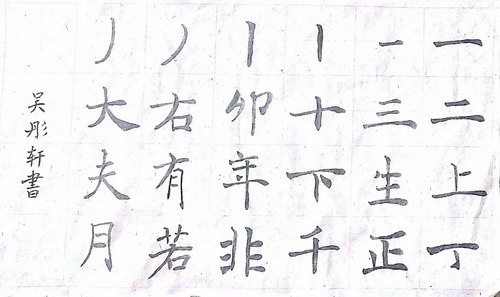 一二上丁
一三生正
丨十下千
丨卯年非
丿右有若
丿大夫月
吴彤轩書